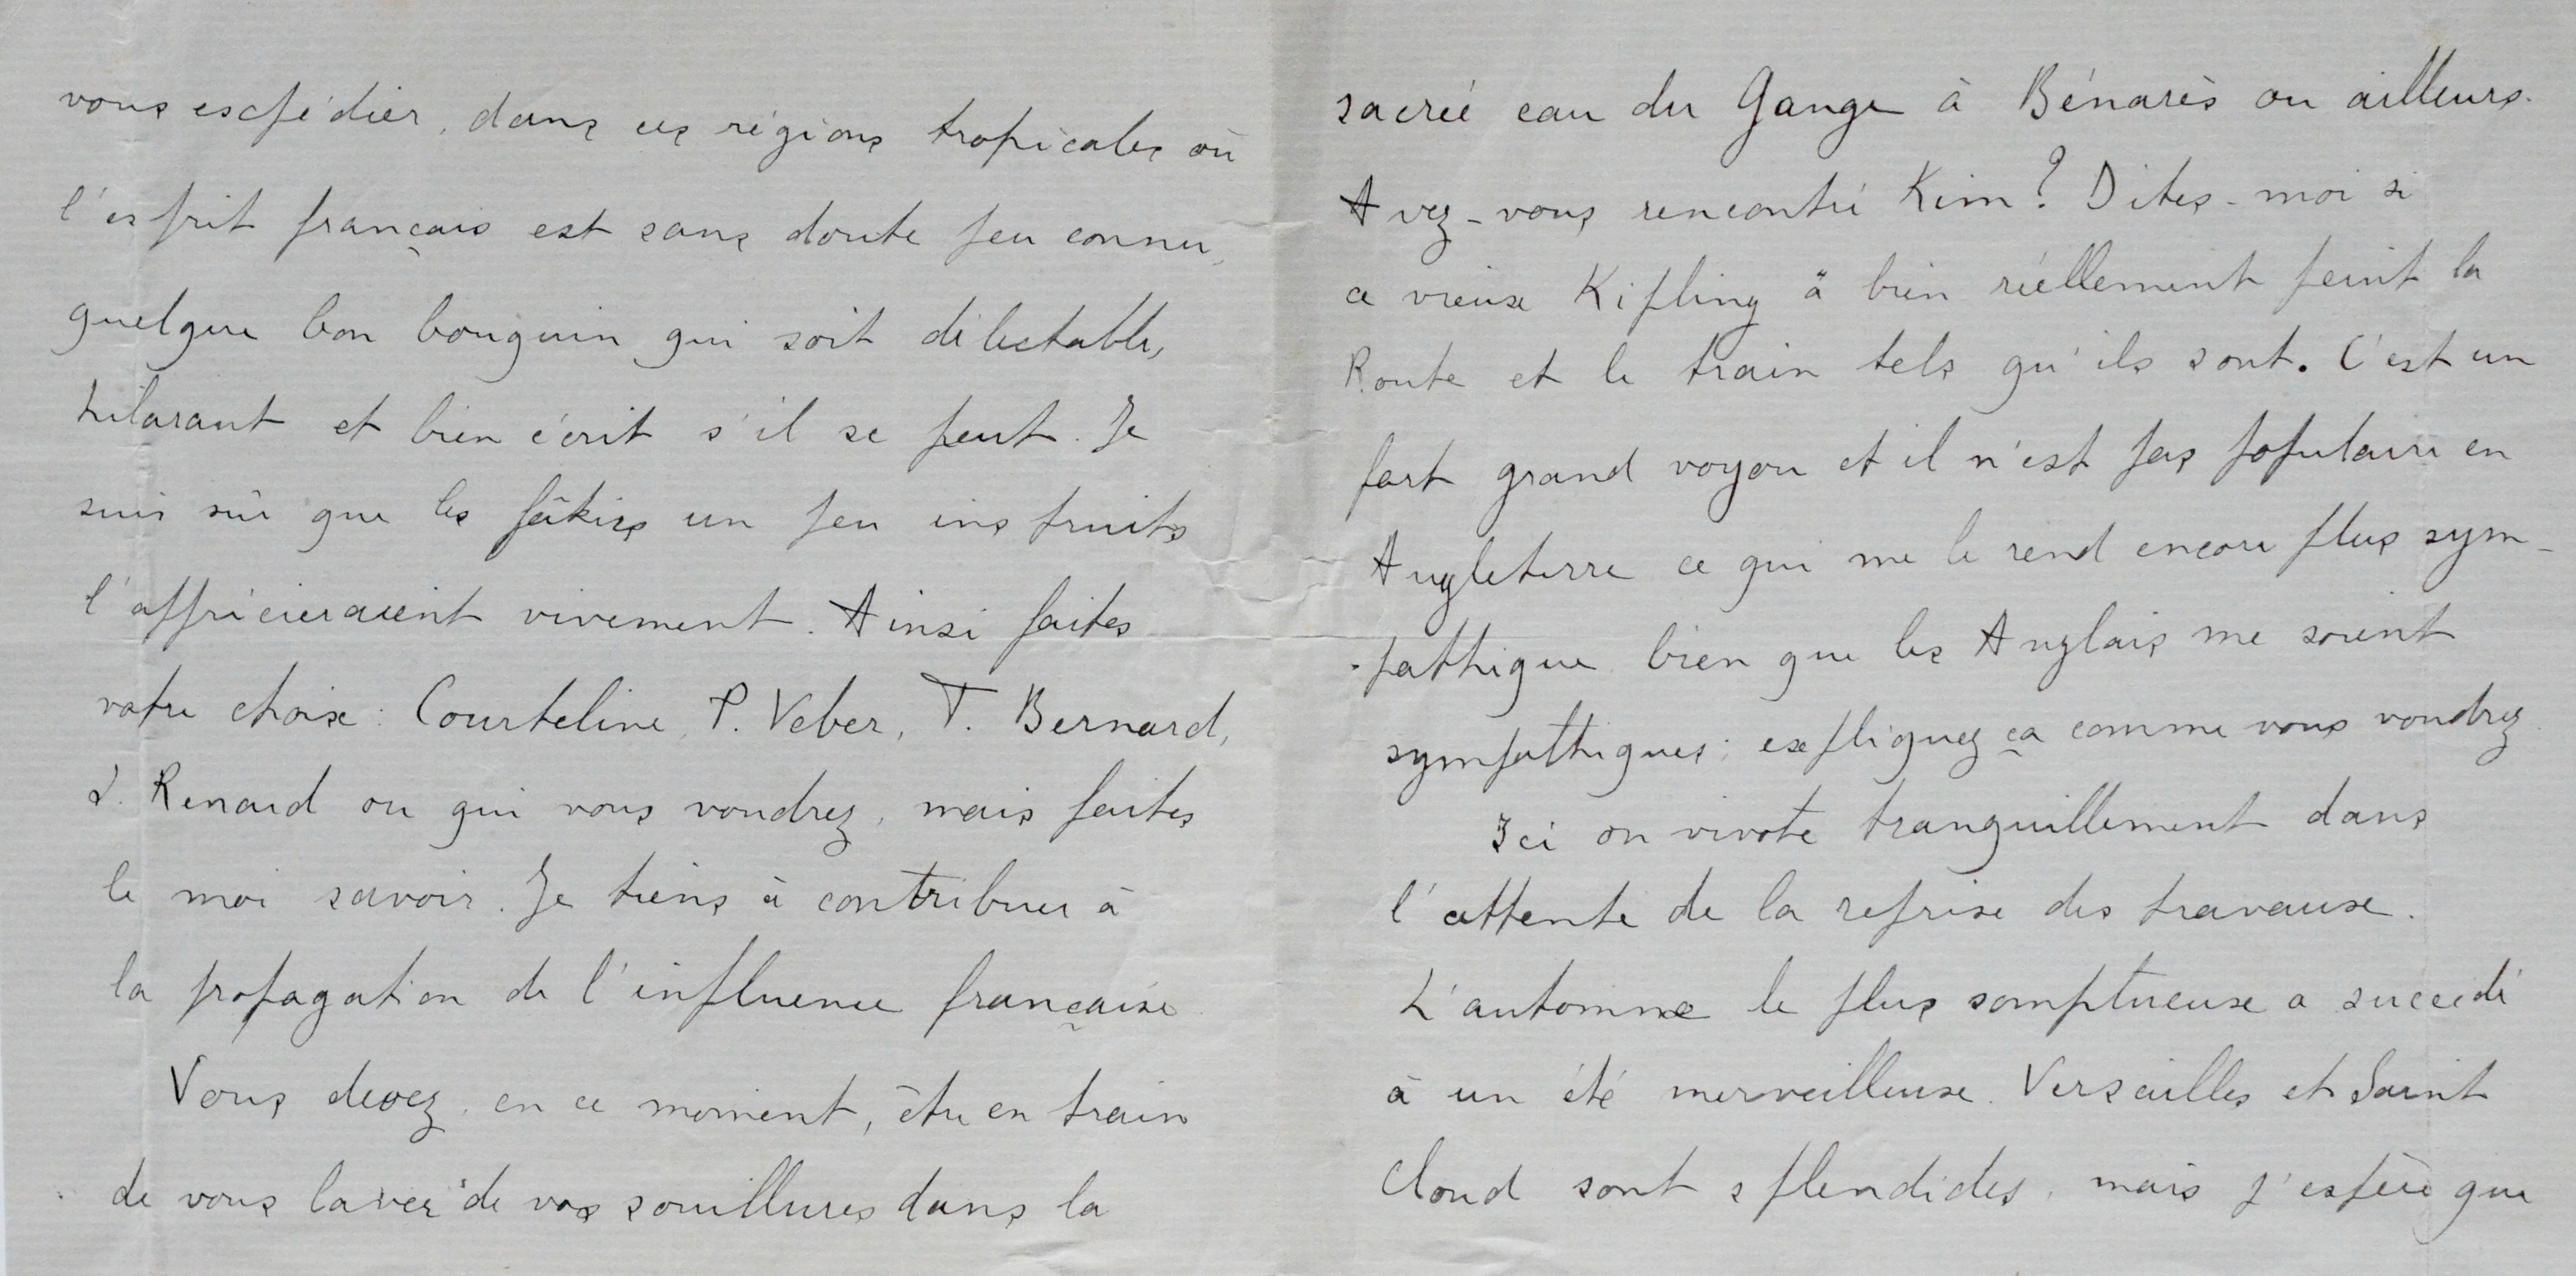 vous expédier, dans ces régions tropicales où
l'esprit français est sans doute peu connu,
quelque bon bouquin qui soit délectable,
hilarant et bien écrit s'il se peut. Je
suis sûr que les fâkirs un peu instruits
l'apprécieraient vivement. Ainsi faites
votre choix : Courteline, P. Veber, T. Bernard,
J. Renard ou qui vous voudrez, mais faites
le moi savoir. Je tiens à contribuer à
la propagation de l'influence française.
Vous devez, en ce moment, être en train
de vous laver de vos souillures dans la
sacrée eau du Gange à Bénarès ou ailleurs.
Avez-vous rencontré Kim? Dites-moi si
ce vieux Kipling a bien réellement peint la
Route et le train tels qu'ils sont. C'est un
fort grand voyou et il n'est pas populaire en
Angleterre ce qui me le rend encore plus sym-
-pathique bien que les Anglais me soient
sympathiques; expliquez ça comme vous voudrez.
Ici on vivote tranquillement dans
l'attente de la reprise des travaux.
L'automne le plus somptueux a succédé
à un été merveilleux. Versailles et Saint
Cloud sont splendides, mais j'espère que